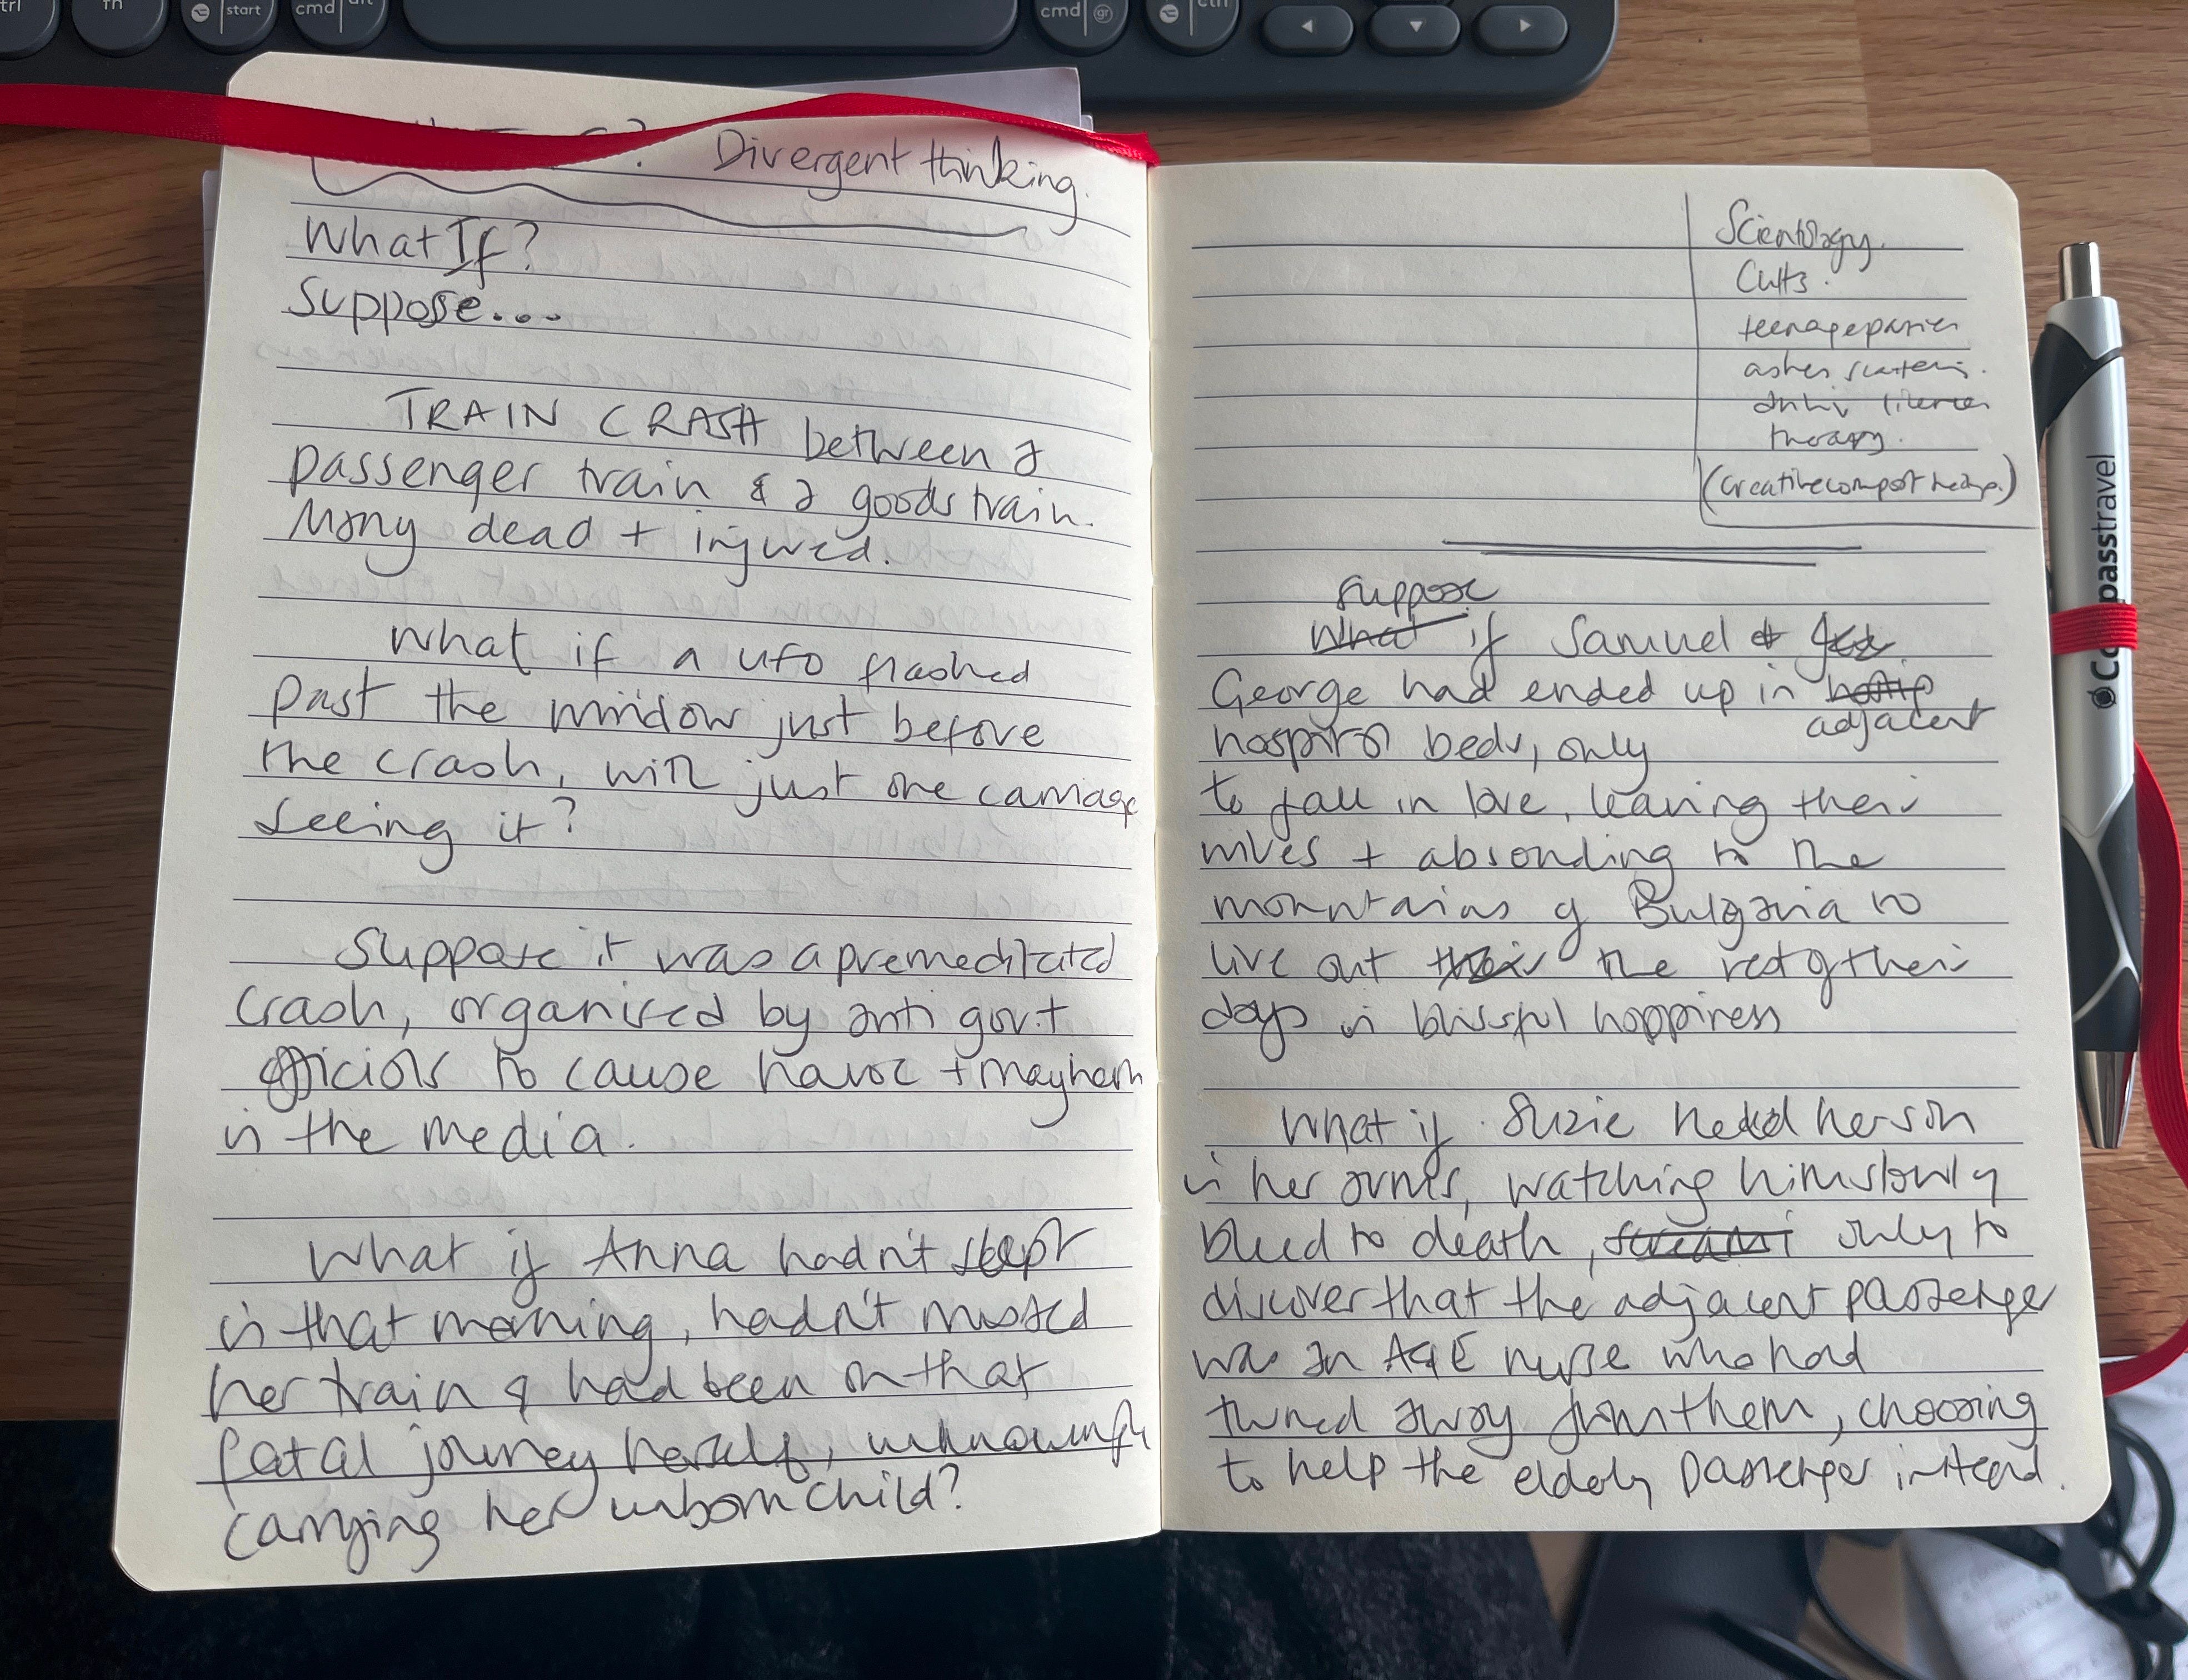 start
cmd
cmd
? Divergent thinking.
What If?
Suppose...
TRAIN CRASH between a
passenger train & a goods train.
Many dead + injured.
What if a UFO flashed
past the window just before
the crash, with just one carriage
seeing it?
Suppose it was a premeditated
crash, organised by anti gov.t
officials to cause havoc + mayhem
in the media.
What if Anna hadn't slept
in that morning, hadn't missed
her train & had been on that
fatal journey herself, unknowingly
carrying her unborn child?
Scientology.
Cults.
teenage parties
ashes scattering.
therapy.
(creative compost heap.)
suppose
What if Samuel &
George had ended up in hosp
adjacent
hospital beds, only
to fall in love, leaving their
wives + absonding to the
mountains of Bulgaria to
live out their the rest of their
days in blissful happiness
What if Suzie held her son
in her arms, watching him slowly
bleed to death, screami only to
discover that the adjacent passenger
was an A&E nurse who had
turned away from them, choosing
to help the elderly passenger instead.
Compasstravel